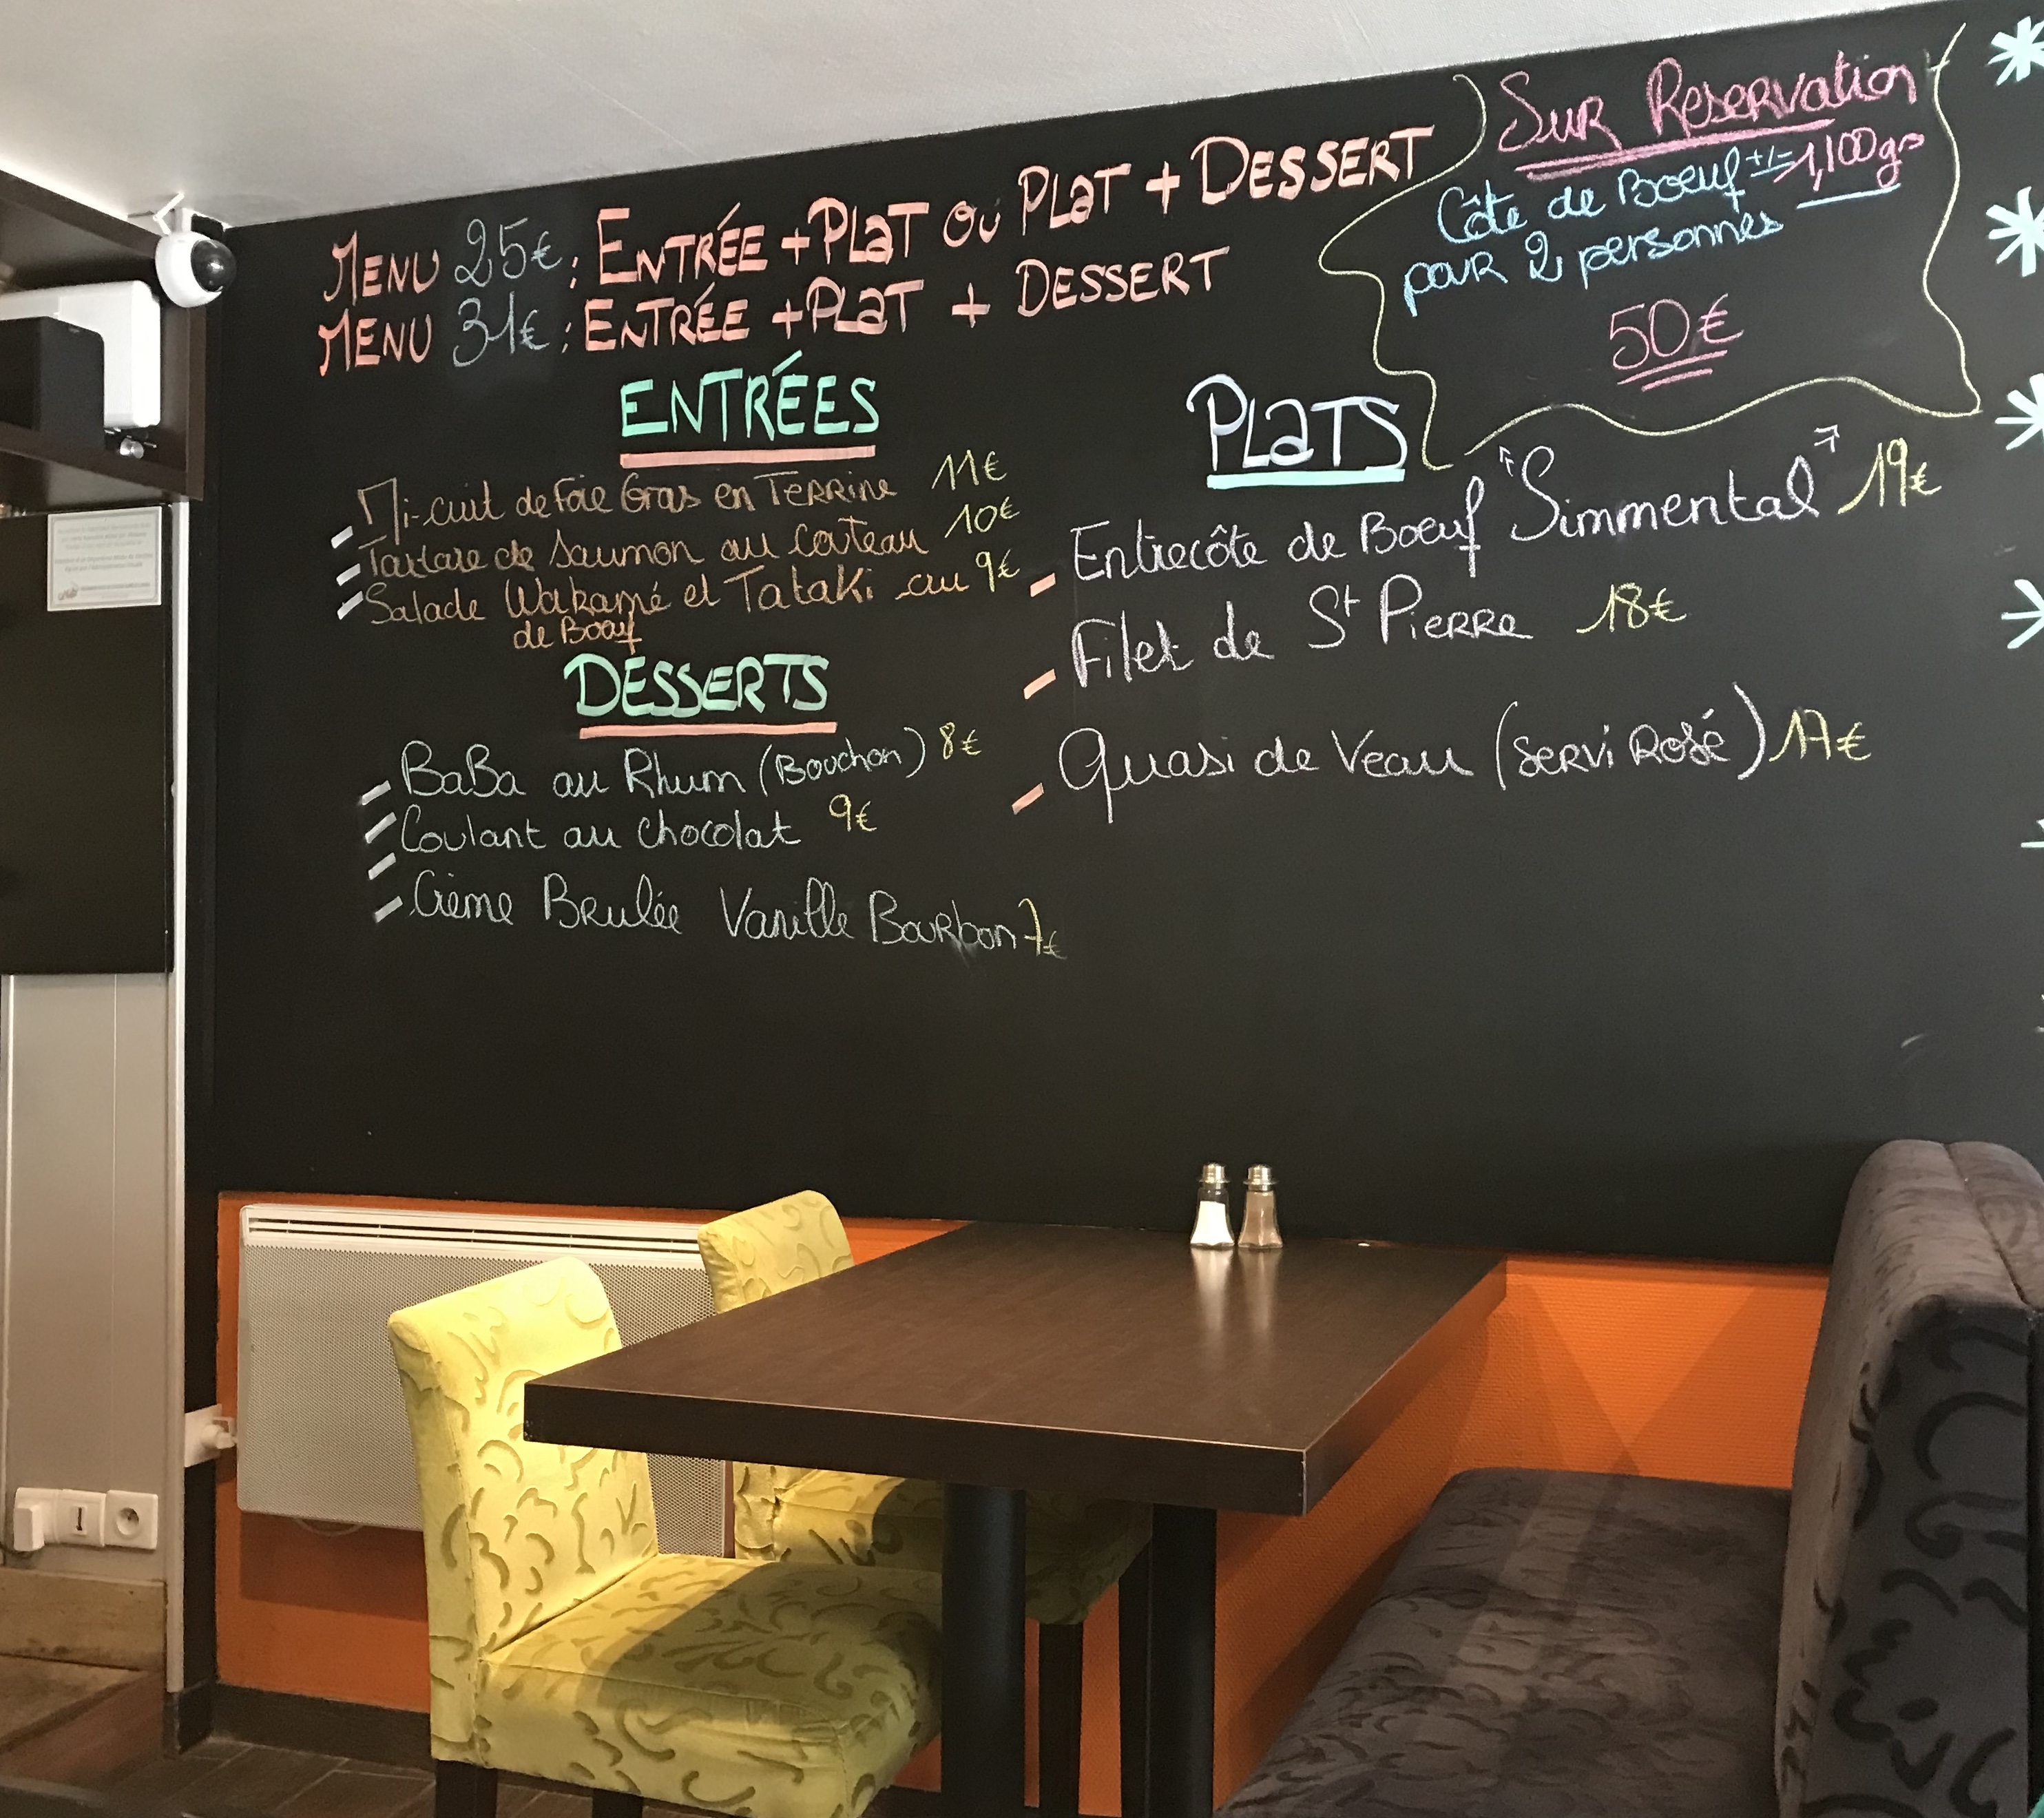 MENU 25€ : ENTRÉE + PLAT OU PLAT + DESSERT
MENU 31€ : ENTRÉE + PLAT + DESSERT
SUR RESERVATION
Côte de Boeuf +/- 1,100grs
pour 2 personnes
50€
ENTRÉES
- Mi-cuit de Foie Gras en Terrine 11€
- Tartare de Saumon au Couteau 10€
- Salade Wakamé et Tataki au 9€
de Boeuf
DESSERTS
- BaBa au Rhum (Bouchon) 8€
- Coulant au chocolat 9€
- Crème Brulée Vanille Bourbon 7€
PLATS
- Entrecôte de Boeuf "Simmental" 19€
- Filet de St PIERRE 18€
- Quasi de Veau (SERVI ROSÉ) 17€